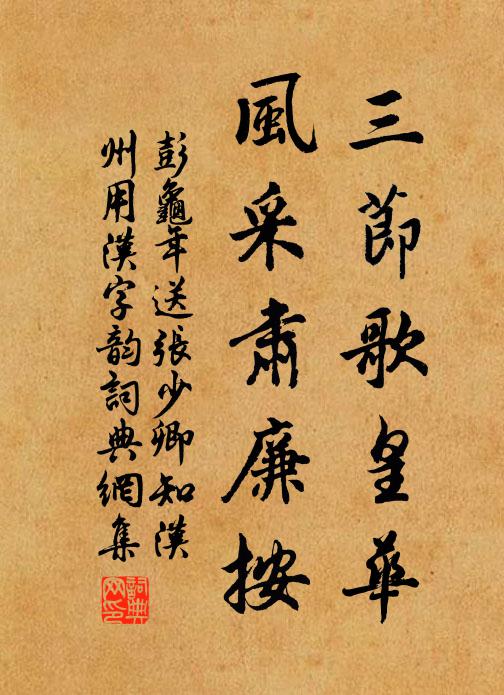 三節歌皇華
風采肅廉按
彭龜年送張少卿知漢
州用漢字韵詞典網集
詞典
网印